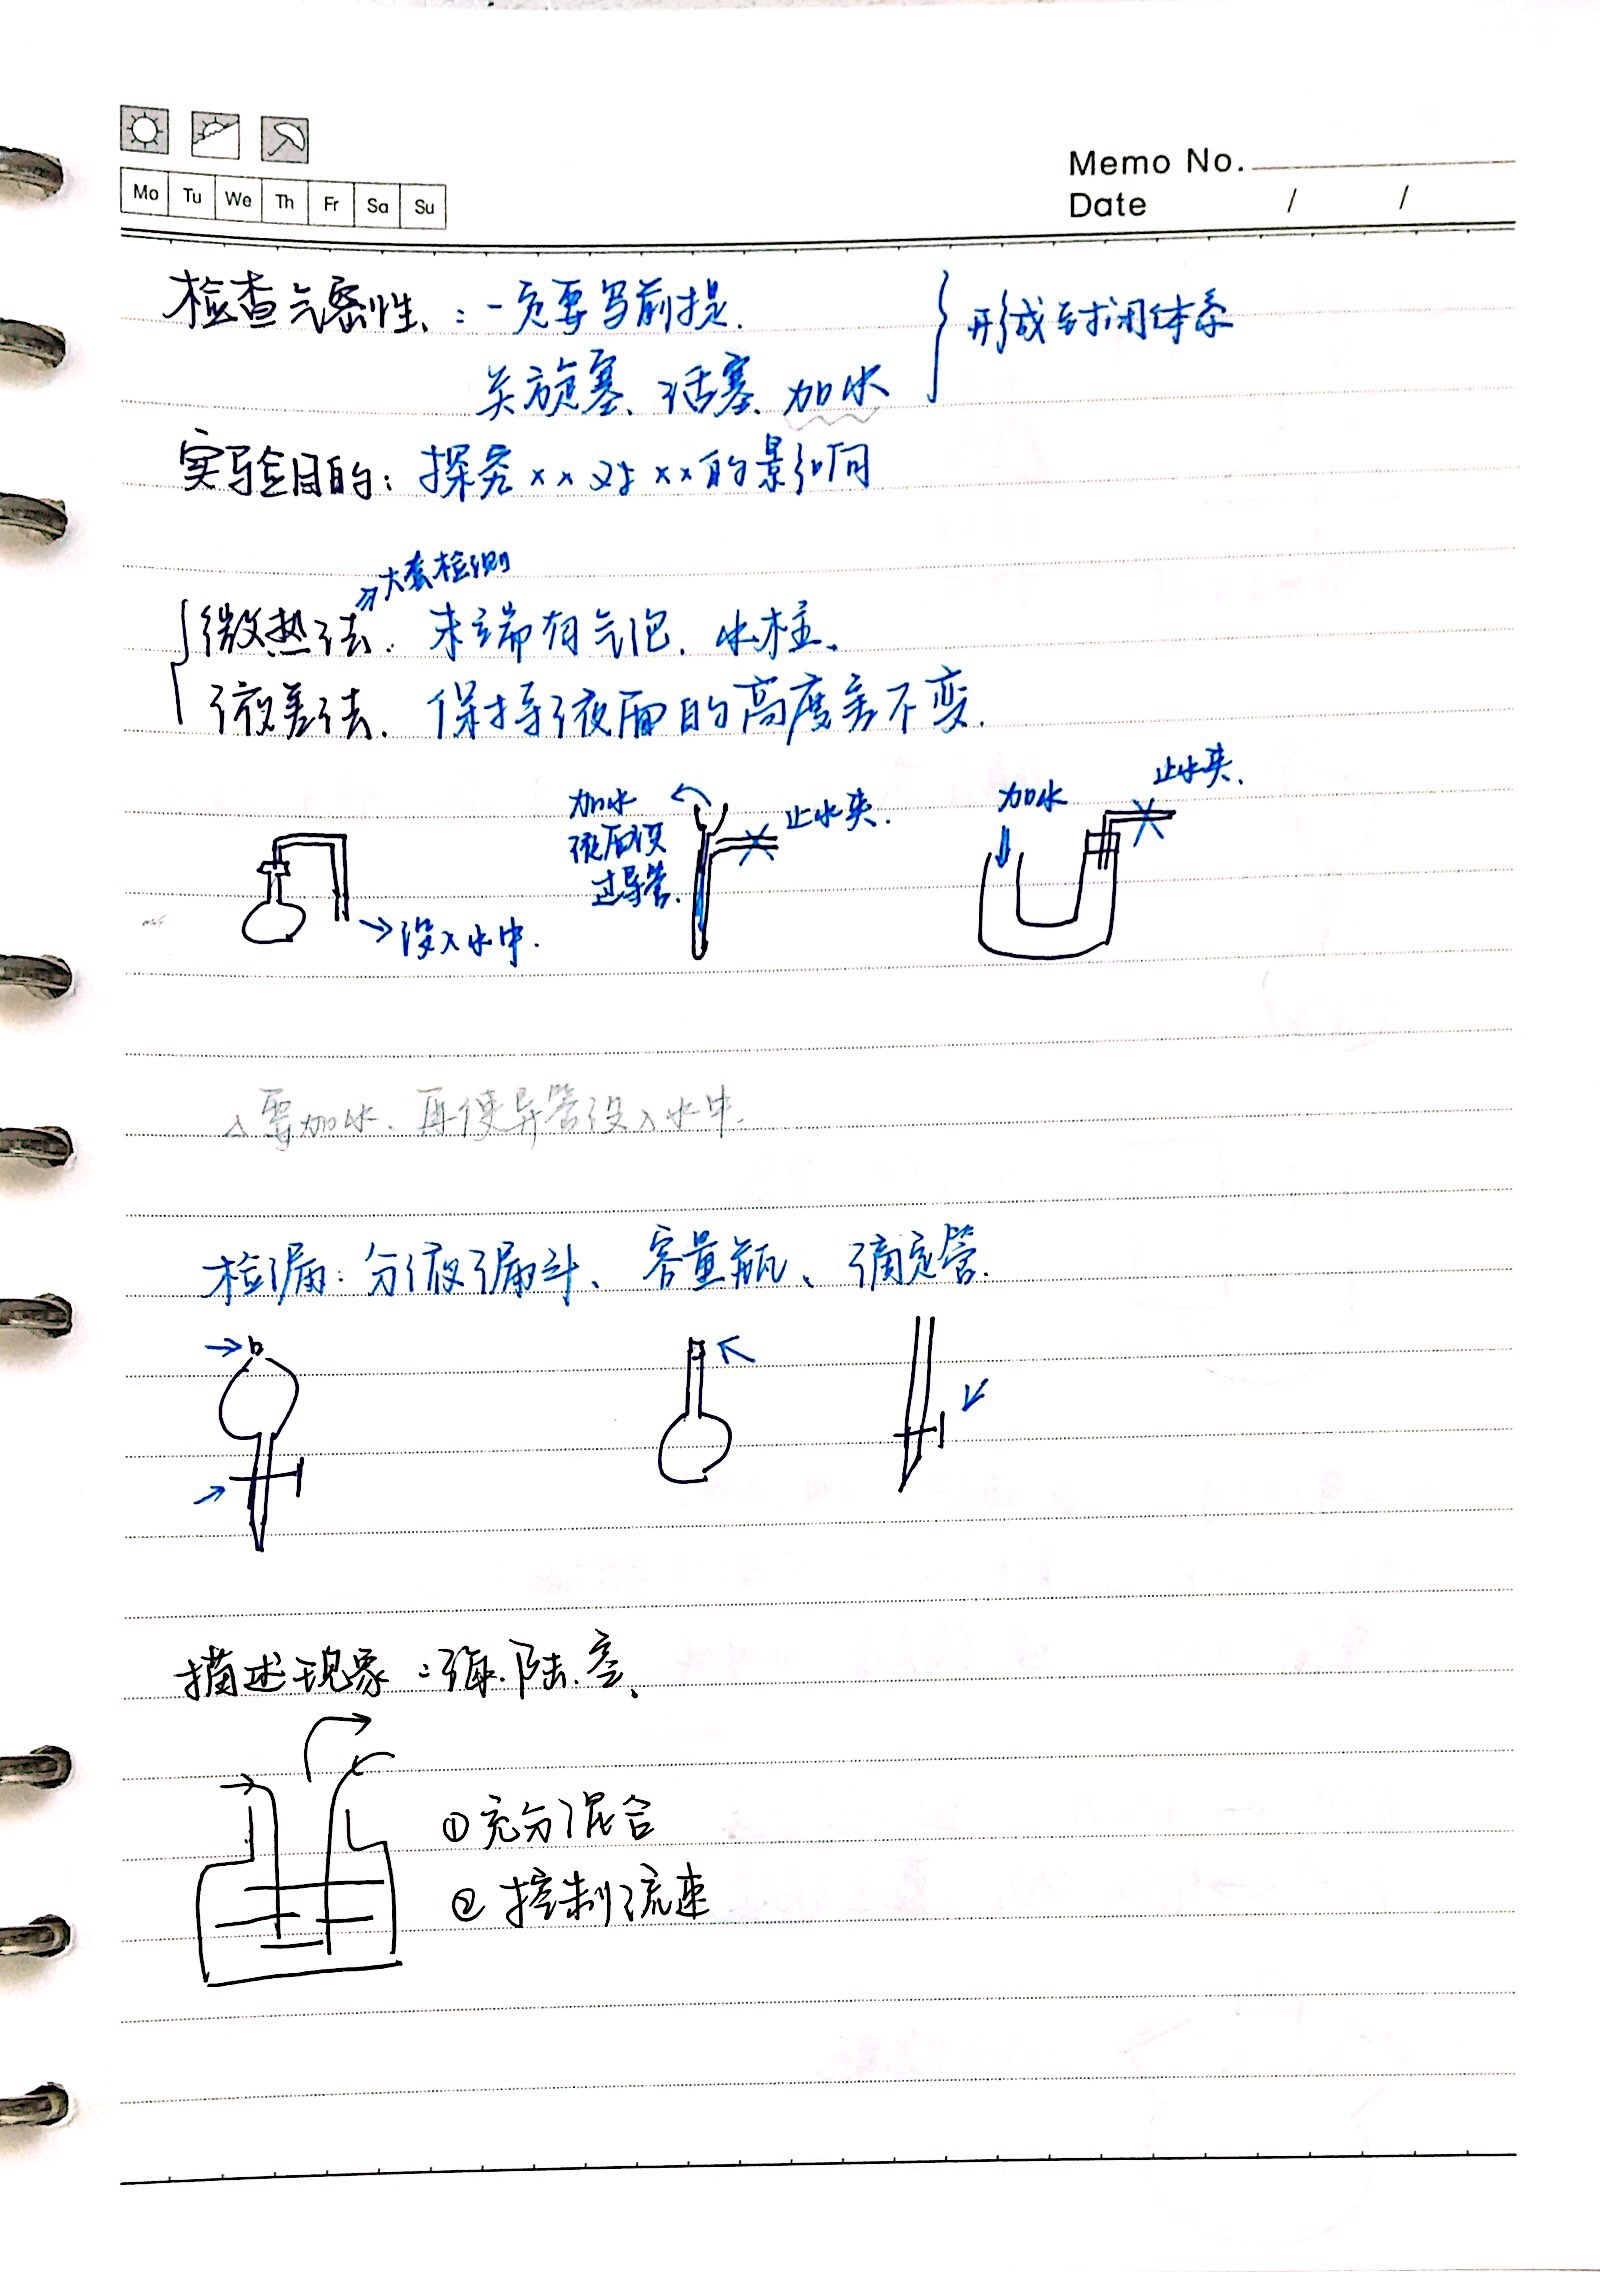 Mo Tu We Th Fr Sa Su
Memo No.
Date / /
检查气密性、：一定要写前提.
关旋塞、活塞、加水
形成封闭体系
实验目的：探究××对××的影响
大套检测
微热法：末端有气泡、水柱.
液差法. 保持液面的高度差不变.
加水
液面没
过导管.
止水夹.
加水
止水夹.
没入水中.
要加水、再使导管没入水中.
检漏：分液漏斗、容量瓶、滴定管.
描述现象：海.陆.空、
①充分混合
②控制流速